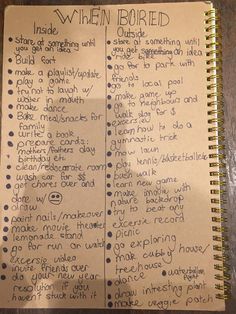 WHEN BORED
Inside
• stare at something until
you get an idea
• Build fort
• make a playlist/update
• play a game
• try not to laugh w/
water in mouth
• make dance
• Bake meal/snacks for
family
• write a book
• prepare cards:
mothers/fathers day
birthday etc
• clean/redecorate room
• wash car for $$
• get chores over and
done w/
• draw
• paint nails/makeover
• make movie theater
• lemonade stand
• go for run or watch
excersie video
• invite friends over
• do your new year
resolution if you
haven't stuck with it
Outside
• stare at something until
you get an idea
• ride bike
• go bor to park with
friends
• go to local pool
• make camp
• go to neighbours and
walk dog for $
• excersie
• learn how to do a
gymnastic trick
• tan
• play tennis/basketball etc
• bush walk
• learn new game
• make smobie with
nature backdrop
• try to beat any
excersie record
• picnic
• go exploring
• make cubby house/
treehouse
• dance
• waterballoon
fight
• draw intresting plant
• make veggie patch